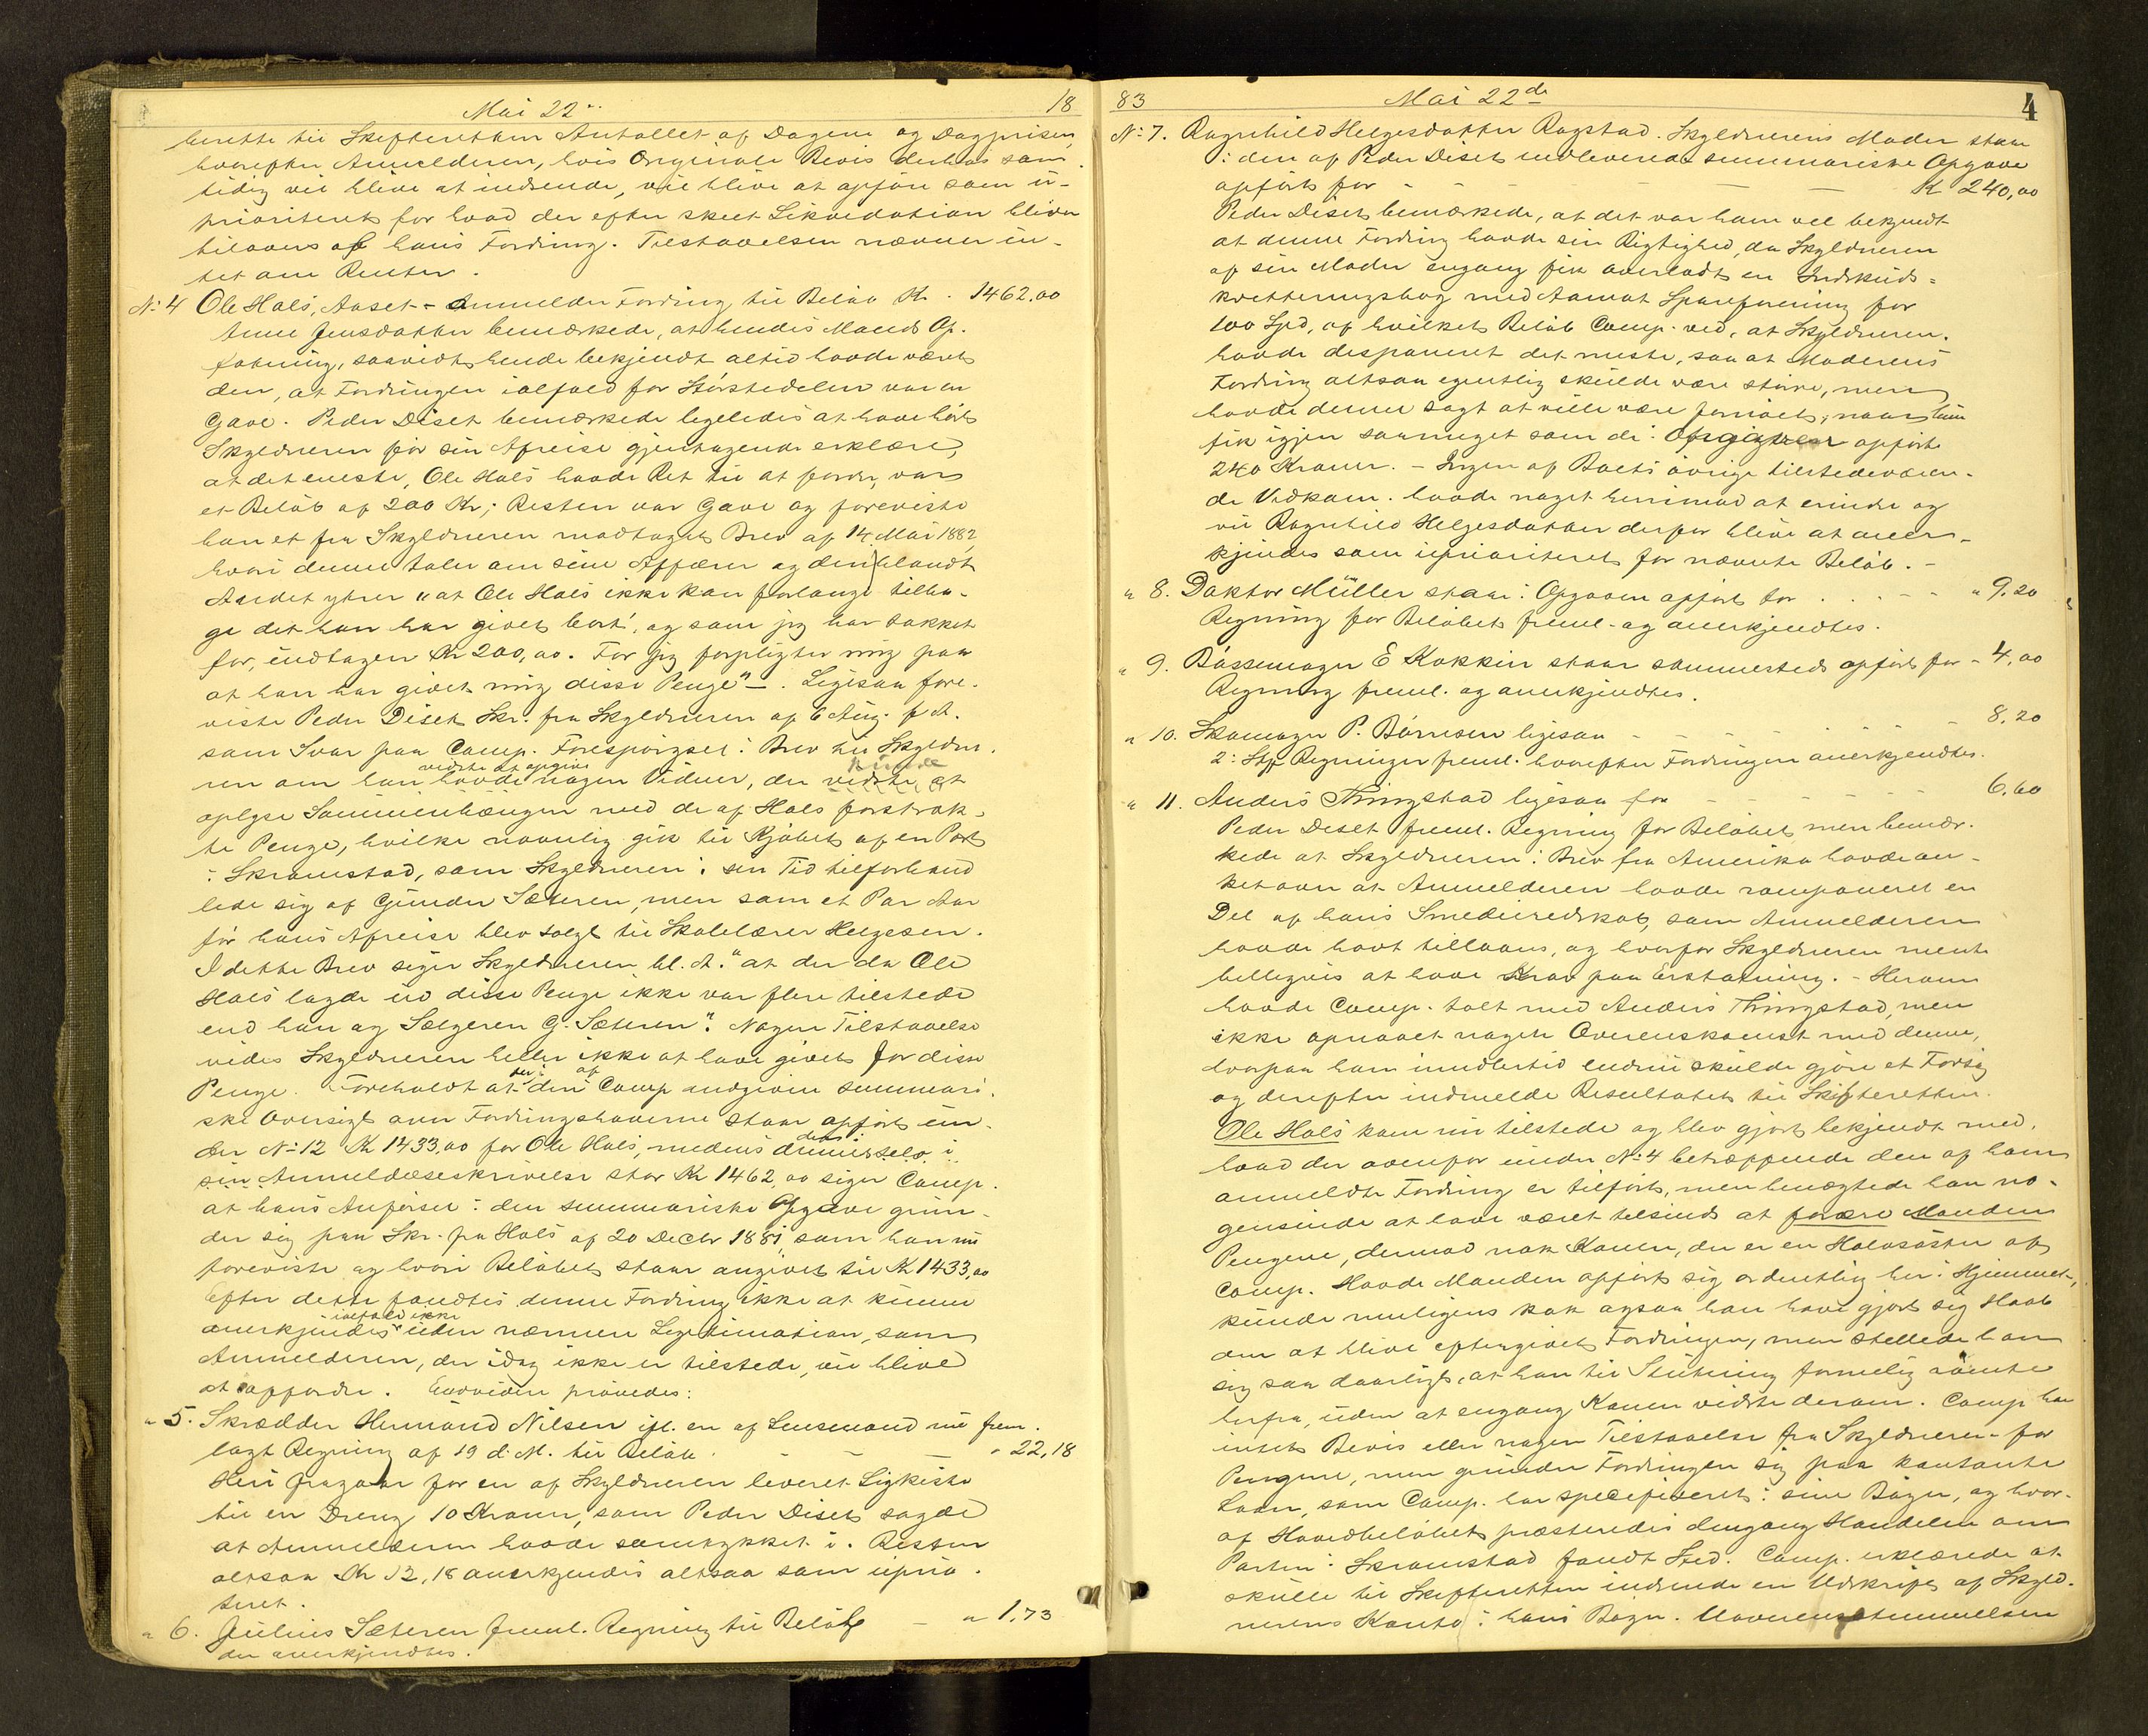 Mai 22 18
berette til Skifteretten Antallet af Dagene og Dagprisen,
hvorefter Anmelderen, hvis Originale Bevis derhos sam
tidig vil blive at indsende, vil blive at opføre som u-
prioriteret for hvad der efter skeet Likvidation bliver
tilovers af hans Fordring. Tilstaaelsen nævner in-
tet om Renter.
No 4 Ole Hals, Aaset - Anmelder Fordring til Beløb Kr. 1462,00
Anne Jensdatter bemærkede, at hendes Mands Op-
fatning, saavidt hende bekjendt altid havde været
den, at Fordringen ialfald for Størstedelen var en
Gave. Peder Diset bemærkede ligeledes at have hørt
Skyldneren før sin Afreise gjentagende erklære,
at det eneste, Ole Hals havde Ret til at fordre, var
et Beløb af 200 Kr; Resten var Gave og foreviste
han et fra Skyldneren modtaget Brev af 14 Mai 1882,
hvori denne taler om sine Affærer og deriblandt
Aaset ytrer "at Ole Hals ikke kan forlange tilba-
ge det han har givet bort, og som jeg har takket
for, undtagen Kr 200,00. For jeg forpligter mig paa
at han har givet mig disse Penge" -. Ligesaa fore-
viste Peder Diset Skr. fra Skyldneren af 6 Aug. f. A.
som Svar paa Comp. Forespørgsel i Brev til Skyldne-
ren om han vidste at opgive havde nogen Vidner, der vidste kunde at
oplyse Sammenhængen med de af Hals forstrak-
te Penge, hvilke navnlig gik til Kjøbet af en Part
i Skramstad, som Skyldneren i sin Tid tilforhand
lede sig af Gunder Sæteren, men som et Par Aar
før hans Afreise blev solgt til Skolelærer Helgesen.
I dette Brev siger Skyldneren bl. A. "at der da Ole
Hals lagde ud disse Penge ikke var flere tilstede
end han og Sælgeren G. Sæteren". Nogen Tilstaaelse
vides Skyldneren heller ikke at have givet for disse
Penge. Foreholdt at der i den af Comp indgivne summari-
ske Oversigt over Fordringshaverne staar opført un-
der No 12 Kr 1433,00 for Ole Hals, medens dennes selv i
sin Anmeldelsesskrivelse har Kr 1462,00 siger Comp.
at hans Anførsel i den summariske Opgave grun-
der sig paa Skr. fra Hals af 20 Decbr 1881, som han nu
foreviste og hvori Beløbet staar angivet til Kr 1433,00
Efter dette fandtes denne Fordring ikke at kunne
anerkjendes ialfald ikke uden nærmere Legitimation, som
Anmelderen, der idag ikke er tilstede, vil blive
at opfordre. Envidere prøvedes:
" 5. Skrædder Hermand Nilsen ifl. en af Lensmand nu frem-
lagt Regning af 19 d. M. til Beløb " 22,18
Heri fragaar for en af Skyldneren leveret Ligkiste
til en Dreng 10 Kroner, som Peder Diset sagde
at Anmelderen havde samtykket i. Resten
altsaa Kr 12,18 anerkjendes altsaa som uprio-
riteret.
" 6. Julius Sæteren freml. Regning til Beløb " 1,73
der anerkjendtes.
83 Mai 22de 4
No 7. Ragnhild Helgesdatter Rogstad. Skyldnerens Moder staar
i den af Peder Diset indleverede summariske Opgave
opført for Kr 240,00
Peder Diset bemærkede, at det var ham vel bekjendt
at denne Fordring havde sin Rigtighed, da Skyldneren
af sin Moder engang fik overladt en Indskuds-
kvitteringsbog med Aamot Spareforening for
100 Spd, af hvilket Beløb Comp. ved, at Skyldneren
havde disponeret det meste, saa at Moderens
Fordring altsaa egentlig skulde være større, men
havde denne sagt at ville være fornøiet, naar hun
fik igjen saameget som de i Opgaven opførte
240 Kroner. - Ingen af Boets øvrige tilstedeværen-
de Vedkom. havde noget herimod at erindre og
vil Ragnhild Helgesdatter derfor blive at aner-
kjendes som uprioriteret for nævnte Beløb. -
" 8. Doktor Müller staar i Opgaven opført for " 9,20
Regning for Beløbet freml. og anerkjendtes.
" 9. Bøssemager E Kokkin staar sammesteds opført for - 4,00
Regning freml. og anerkjendtes.
" 10. Skomager P. Børnsen ligesaa 8,20
2: Stk Regninger freml. hvorefter Fordringen anerkjendtes.
" 11. Anders Thingstad ligesaa for 6,60
Peder Diset freml. Regning for Beløbet, men bemær-
kede at Skyldneren i Brev fra Amerika havde an-
ket over at Anmelderen havde ramponeret en
Del af hans Smedieredskab, som Anmelderen
havde havt tillaans, og hvorfor Skyldneren mente
billigvis at have Krav paa Erstatning. - Herom
havde Comp. talt med Anders Thingstad, men
ikke opnaaet nogen Overenskomst med denne,
hvorpaa han imidlertid endnu skulde gjøre et Forsøg
og derefter indmelde Resultatet til Skifteretten.
Ole Hals kom nu tilstede og blev gjort bekjendt med,
hvad der ovenfor under No 4 betræffende den af ham
anmeldte Fordring er tilført, men benægtede han no-
gensinde at have været tilsinds at forære Manden
Pengene, derimod nok Konen, der er en Halvsøster af
Comp. Havde Manden opført sig ordentlig her i Hjemmet,
kunde muligens nok ogsaa han have gjort sig Haab
om at blive eftergivet Fordringen, men stellede han
sig saa daarligt, at han til Slutning formelig rømte
herfra, uden at engang Konen vidste derom. Comp har
intet Bevis eller nogen Tilstaaelse fra Skyldneren for
Pengene, men grunder Fordringen sig paa kontante
Laan, som Comp. har specificeret i sine Bøger, og hvor-
af Hovedbeløbet præsteredes dengang Handelen om
Parten i Skramstad fandt Sted. Comp. erklærede at
skulle til Skifteretten indsende en Udskrift af Skyld-
nerens Konto i hans Bøger. Uoverensstemmelsen